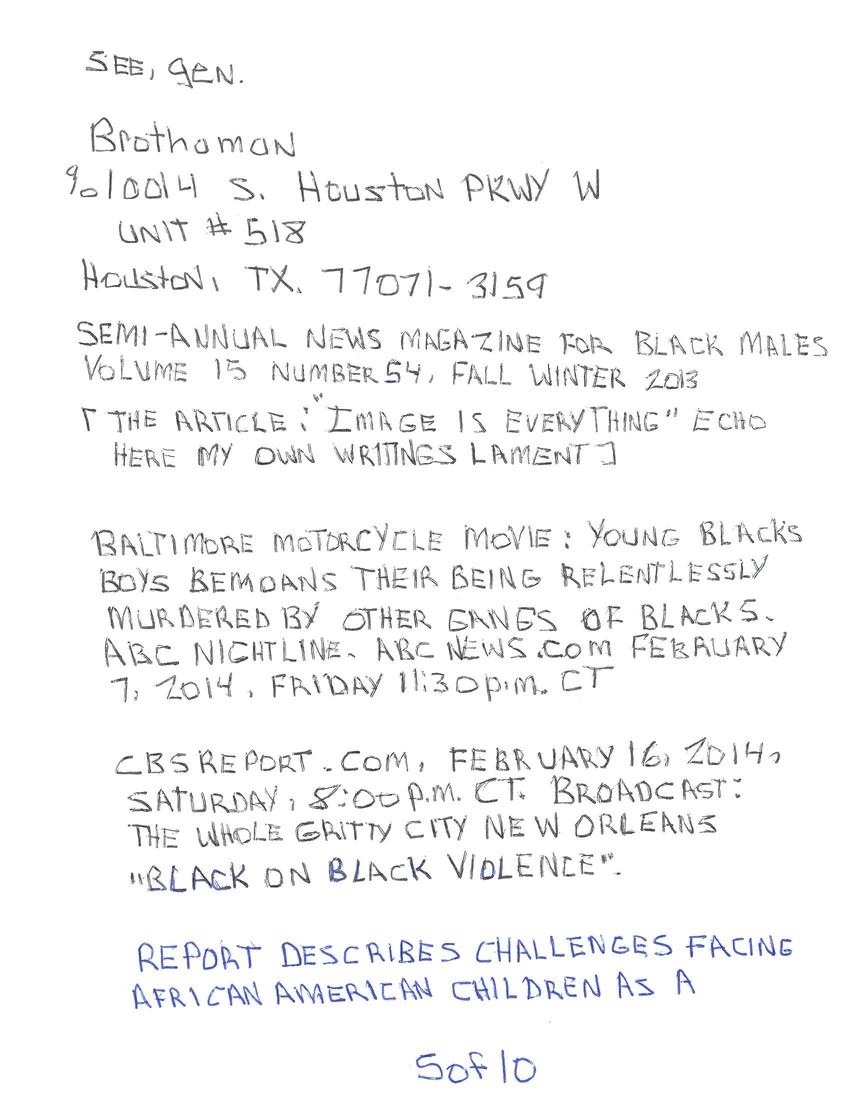 SEE, gEN.
BrothamaN
% 10014 S. HoustoN PKWY W
UNIT # 518
HoustoN, TX. 77071-3159
SEMI-ANNUAL NEWS MAGAZINE FOR BLACK MALES
VOLUME 15 NUMBER 54, FALL WINTER 2013
[ THE ARTICLE : "IMAGE IS EVERYTHING" ECHO
HERE MY OWN WRITINGS LAMENT ]
BALTIMORE MOTORCYCLE MOVIE : YOUNG BLACKS
BOYS BEMOANS THEIR BEING RELENTLESSLY
MURDERED BY OTHER GANGS OF BLACKS.
ABC NIGHTLINE. ABC NEWS.COM FEBRUARY
7, 2014, FRIDAY 11:30 p.m. CT
CBSREPORT.COM, FEBRUARY 16, 2014,
SATURDAY, 8:00 P.M. CT. BROADCAST:
THE WHOLE GRITTY CITY NEW ORLEANS
"BLACK ON BLACK VIOLENCE".
REPORT DESCRIBES CHALLENGES FACING
AFRICAN AMERICAN CHILDREN AS A
5 of 10